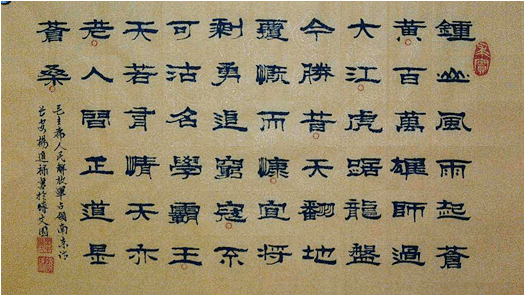 鍾山風雨起蒼
黄百萬雄師過
大江虎踞龍盤
今勝昔天翻地
覆慨而慷宜將
剩勇追窮寇不
可沽名學霸王
天若有情天亦
老人間正道是
蒼桑
毛主席人民解放軍占領南京詩
长安楊進禄書於園